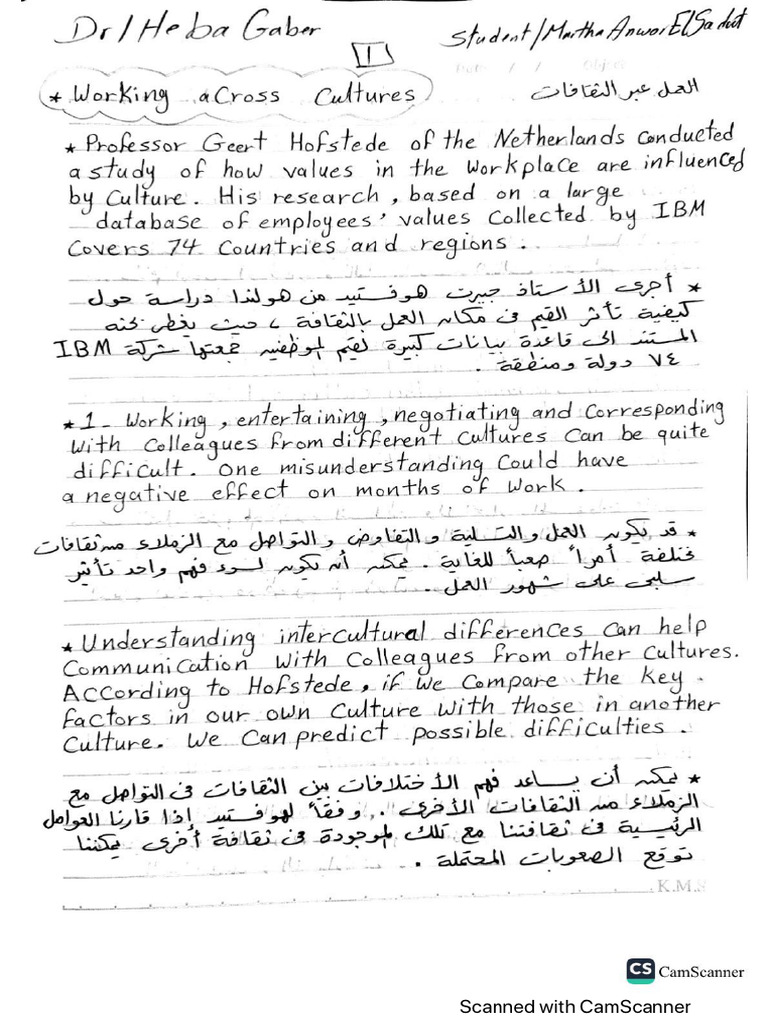 Dr/Heba Gaber
Student/Martha Anwor ElSadat
1
* Working across Cultures
العمل عبر الثقافات
* Professor Geert Hofstede of the Netherlands conducted
a study of how values in the workplace are influenced
by Culture. His research, based on a large
database of employees' values Collected by IBM
Covers 74 Countries and regions.
* أجرى الأستاذ جيرت هوفستيد من هولندا دراسة حول
كيفية تأثر القيم فى مكان العمل بالثقافة، حيث يغطى بحثه
المستند الى قاعدة بيانات كبيرة لقيم الموظفين جمعتها شركة IBM
٧٤ دولة ومنطقة.
* 1- Working, entertaining, negotiating and Corresponding
With Colleagues from different Cultures Can be quite
difficult. One misunderstanding Could have
a negative effect on months of Work.
* قد يكون العمل والتسلية والتفاوض والتواصل مع الزملاء من ثقافات
مختلفة أمراً صعباً للغاية. يمكن أن يكون لسوء فهم واحد تأثير
سلبى على شهور العمل.
* Understanding intercultural differences Can help
Communication With Colleagues from other Cultures.
According to Hofstede, if We Compare the key
factors in our own Culture With those in another
Culture. We Can predict possible difficulties.
* يمكن أن يساعد فهم الأختلافات بين الثقافات فى التواصل مع
الزملاء من الثقافات الأخرى. وفقاً لهوفستيد إذا قارنا العوامل
الرئيسية فى ثقافتنا مع تلك الموجودة فى ثقافة أخرى يمكننا
توقع الصعوبات المحتملة.
K.M.
CS CamScanner
Scanned with CamScanner